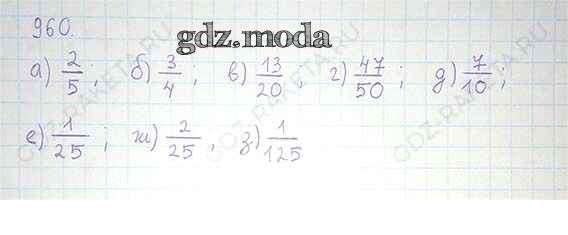 960.
gdz.moda
а) 2/5; б) 3/4; в) 13/20; г) 47/50; д) 7/10;
е) 1/25; ж) 2/25, з) 1/125
GDZ-RAKETA.RU
GDZ-RAKETA.RU
GDZ-RAKETA.RU